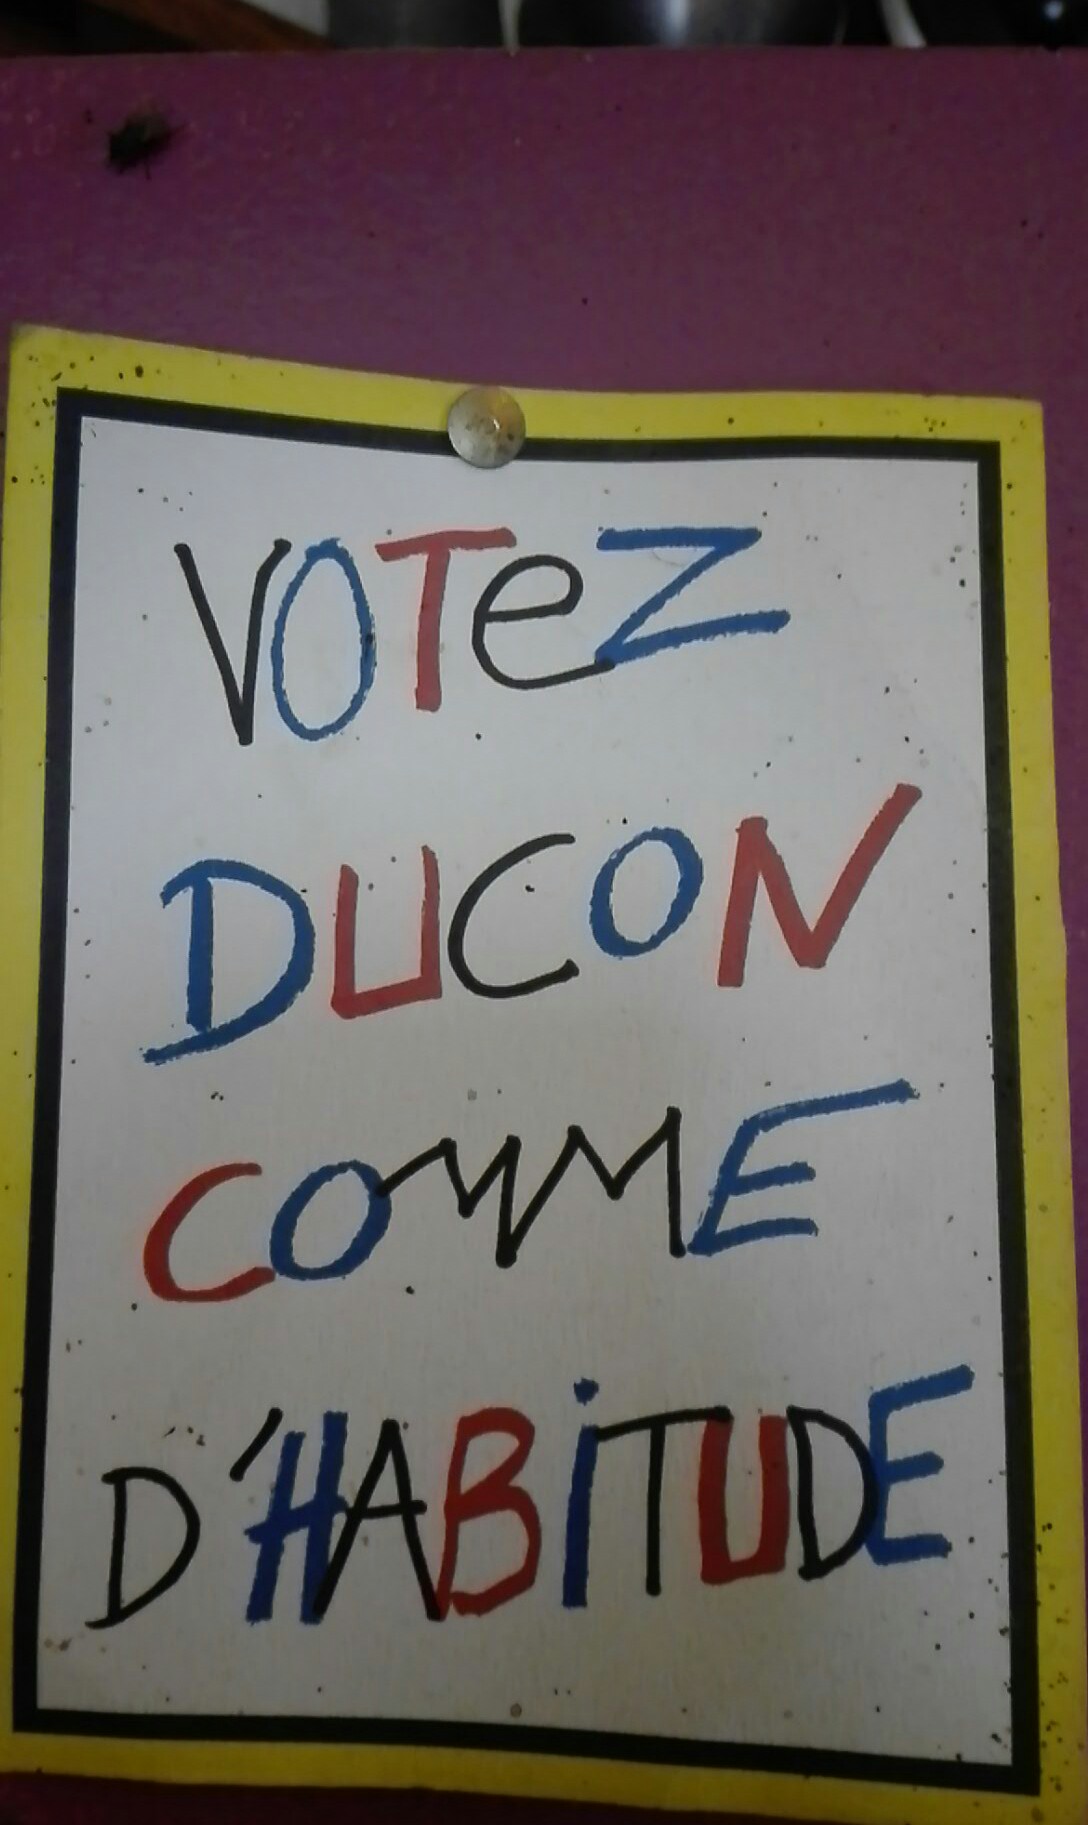 VOTeZ
DUCON
COMME
D'HABiTUDE